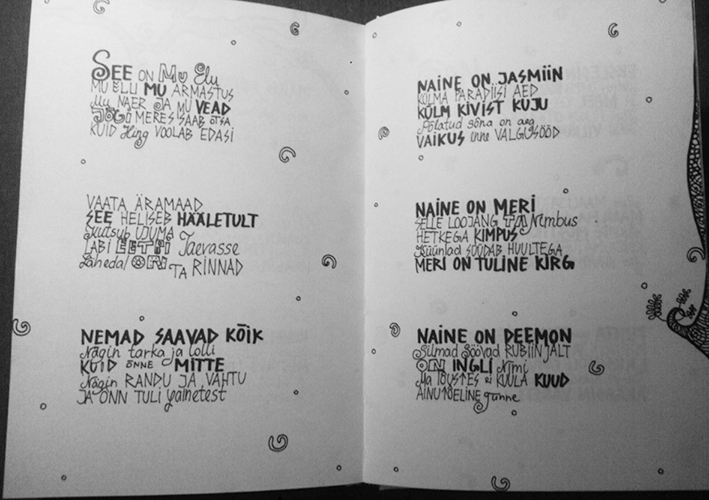 SEE ON MU Elu
MU ELU MU ARMASTUS
Mu NAER JA MU VEAD
JÕGI MERES SAAB OTSA
KUID Hing VOOLAB EDASI
VAATA ÄRAMAAD
SEE HELISEB HÄÄLETULT
Kutsub UJUMA
LÄBI EETRI Taevasse
Lähedal ON TA RINNAD
NEMAD SAAVAD KÕIK
Nägin tarka ja lolli
KUID ÕNNE MITTE
Nägin RANDU JA VAHTU
JA ÕNN TULI Vainetest
NAINE ON JASMIIN
KÜLMA PARADIISI AED
KÜLM KIVIST KUJU
Põlatud sõna on aeg
VAIKUS VALGUSÖÖD
NAINE ON MERI
SELLE LOOJANG TA Nimbus
HETKEGA KIMPUS
Küünlad SÜÜDAB HUULTEGA
MERI ON TULINE KIRG
NAINE ON DEEMON
Silmad Söövad RUBIINJALT
ON INGLI Nimi
Ma TÕUSTES ei KUULA KUUD
AINUTOELINE tunne